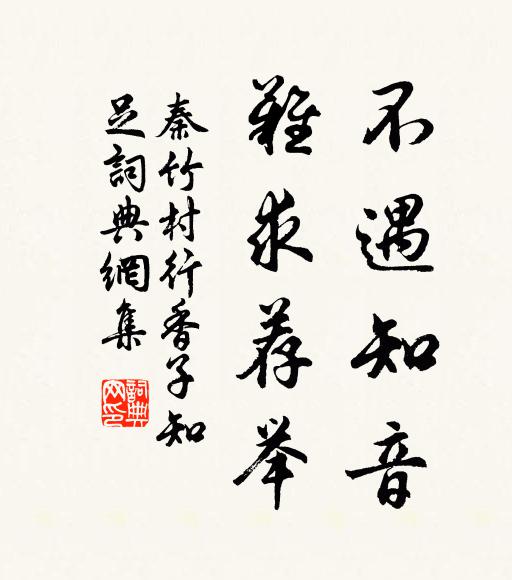 不遇知音
難求荐举
秦竹村行香子知
足詞典網集
詞典
网印